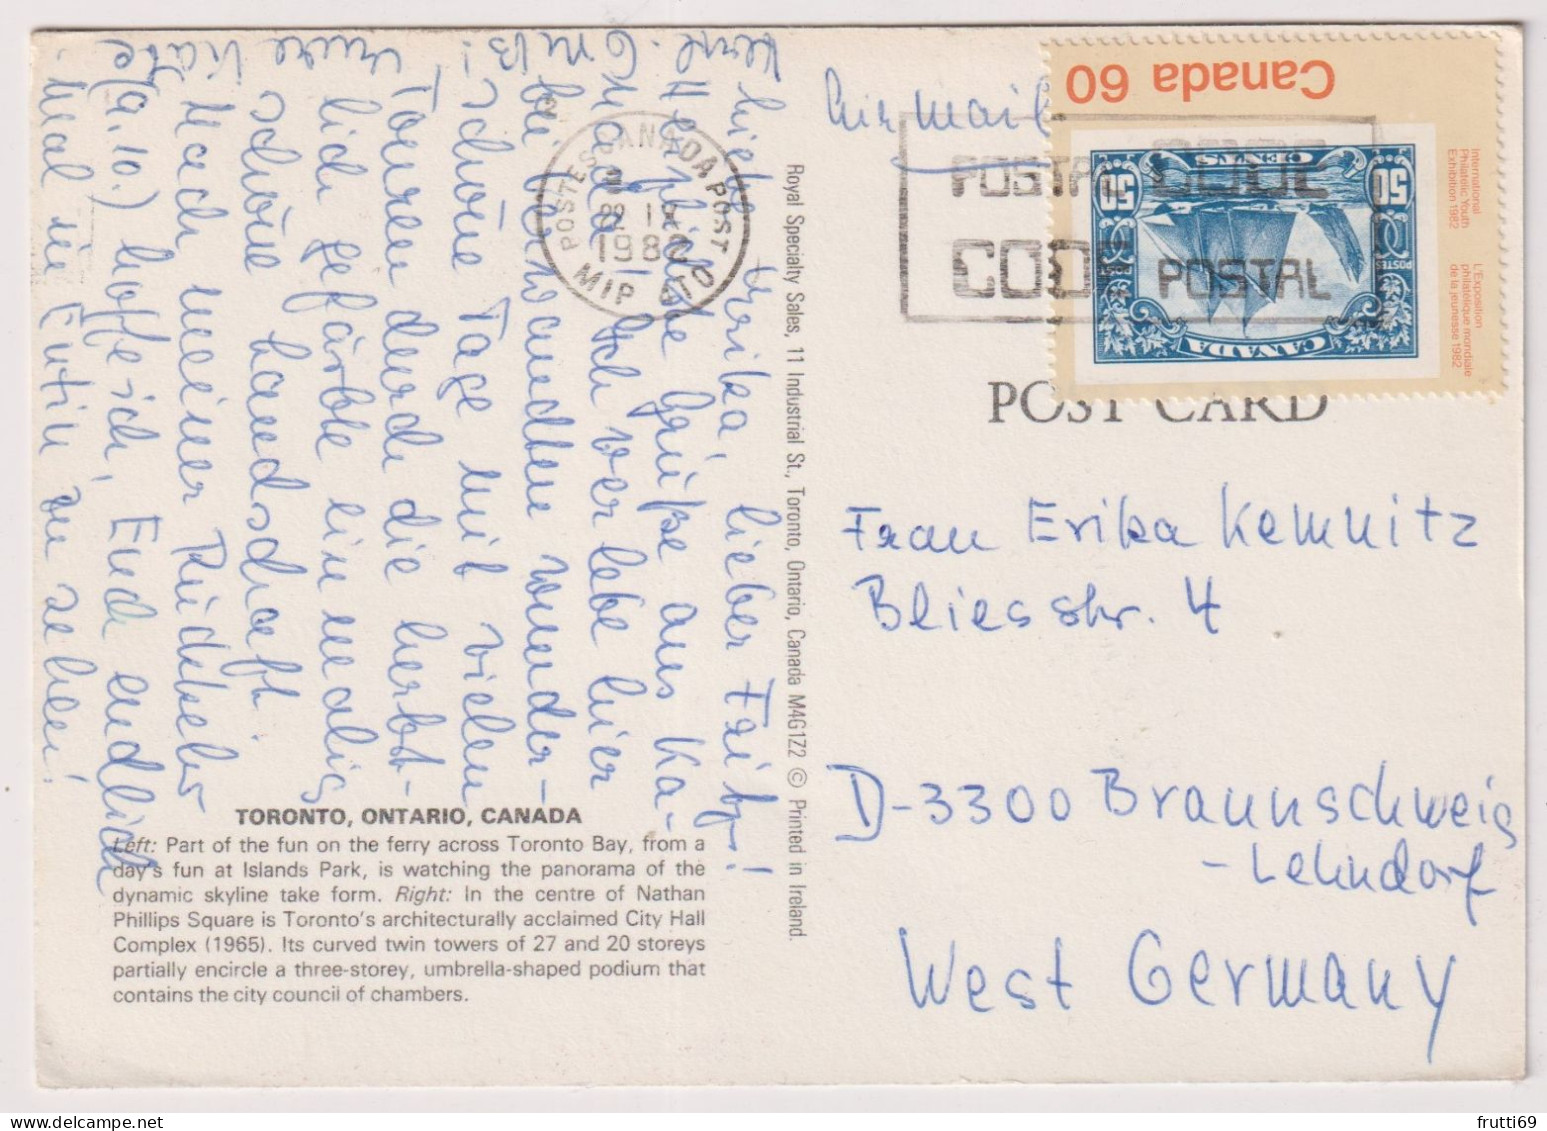 Liebe Erika, lieber Fritz!
Herzliche Grüße aus Ka-
nada! Ich verlebe hier
bei Verwandten wunder-
schöne Tage mit vielen
Touren durch die herbst-
lich gefärbte einmalig
schöne Landschaft.
Nach meiner Rückkehr
(9.10.) hoffe ich, Euch endlich
mal in Eutin zu sehen!
Eure Käte
TORONTO, ONTARIO, CANADA
Left: Part of the fun on the ferry across Toronto Bay, from a
day's fun at Islands Park, is watching the panorama of the
dynamic skyline take form. Right: In the centre of Nathan
Phillips Square is Toronto's architecturally acclaimed City Hall
Complex (1965). Its curved twin towers of 27 and 20 storeys
partially encircle a three-storey, umbrella-shaped podium that
contains the city council of chambers.
Royal Specialty Sales, 11 Industrial St., Toronto, Ontario, Canada M4G1Z2 © Printed in Ireland.
CANADA POST
POSTES
22 IX
1982
MIP OTO
Air mail
POSTAL CODE
CODE POSTAL
Canada 60
International
Philatelic Youth
Exhibition 1982
L'Exposition
philatélique mondiale
de la jeunesse 1982
CANADA
POSTES POSTAGE
50 50
CENTS
POST CARD
Frau Erika Kemnitz
Bliesstr. 4
D-3300 Braunschweig
-Lehndorf
West Germany
frutti69